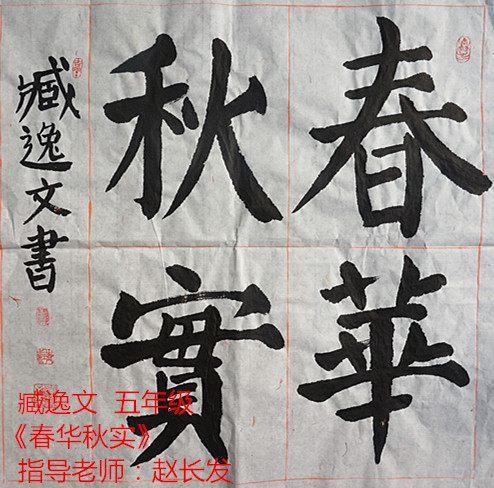 春華
秋實
臧逸文書
臧逸文 五年级
《春华秋实》
指导老师：赵长发